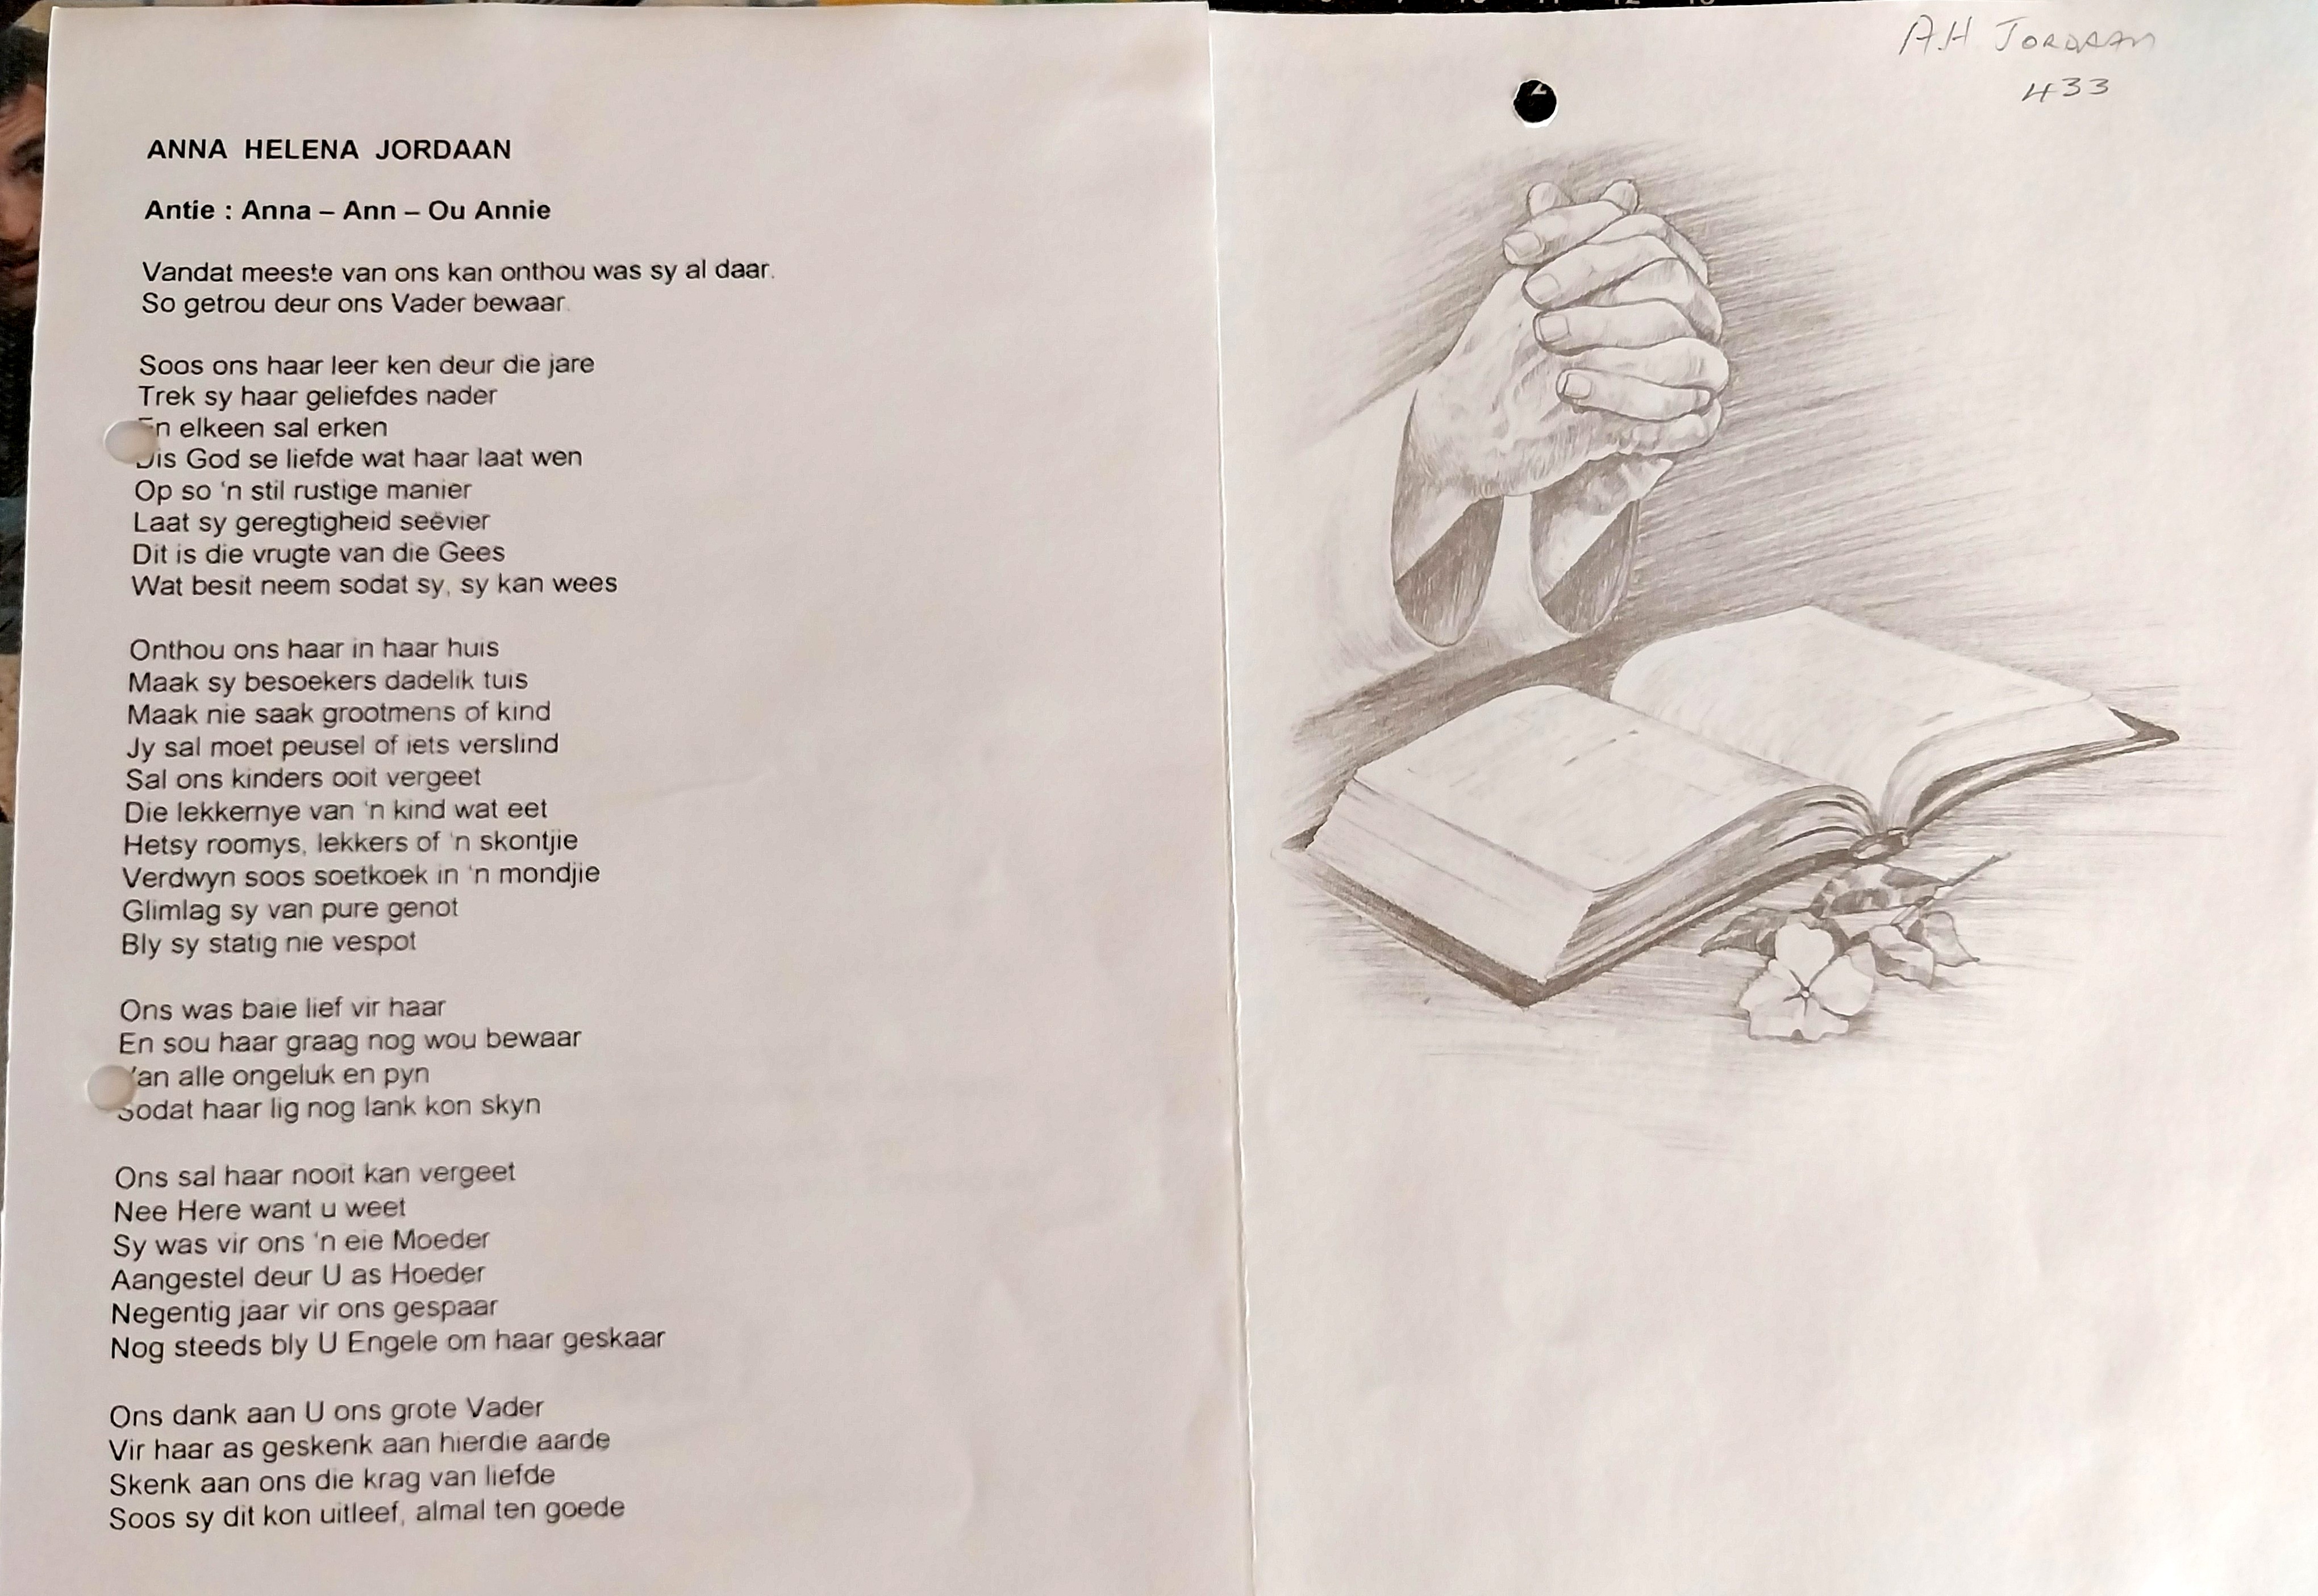 ANNA HELENA JORDAAN
Antie : Anna – Ann – Ou Annie
Vandat meeste van ons kan onthou was sy al daar.
So getrou deur ons Vader bewaar.
Soos ons haar leer ken deur die jare
Trek sy haar geliefdes nader
En elkeen sal erken
Dis God se liefde wat haar laat wen
Op so 'n stil rustige manier
Laat sy geregtigheid seëvier
Dit is die vrugte van die Gees
Wat besit neem sodat sy, sy kan wees
Onthou ons haar in haar huis
Maak sy besoekers dadelik tuis
Maak nie saak grootmens of kind
Jy sal moet peusel of iets verslind
Sal ons kinders ooit vergeet
Die lekkernye van 'n kind wat eet
Hetsy roomys, lekkers of 'n skontjie
Verdwyn soos soetkoek in 'n mondjie
Glimlag sy van pure genot
Bly sy statig nie vespot
Ons was baie lief vir haar
En sou haar graag nog wou bewaar
Van alle ongeluk en pyn
Sodat haar lig nog lank kon skyn
Ons sal haar nooit kan vergeet
Nee Here want u weet
Sy was vir ons 'n eie Moeder
Aangestel deur U as Hoeder
Negentig jaar vir ons gespaar
Nog steeds bly U Engele om haar geskaar
Ons dank aan U ons grote Vader
Vir haar as geskenk aan hierdie aarde
Skenk aan ons die krag van liefde
Soos sy dit kon uitleef, almal ten goede
A.H JORDAAN
433